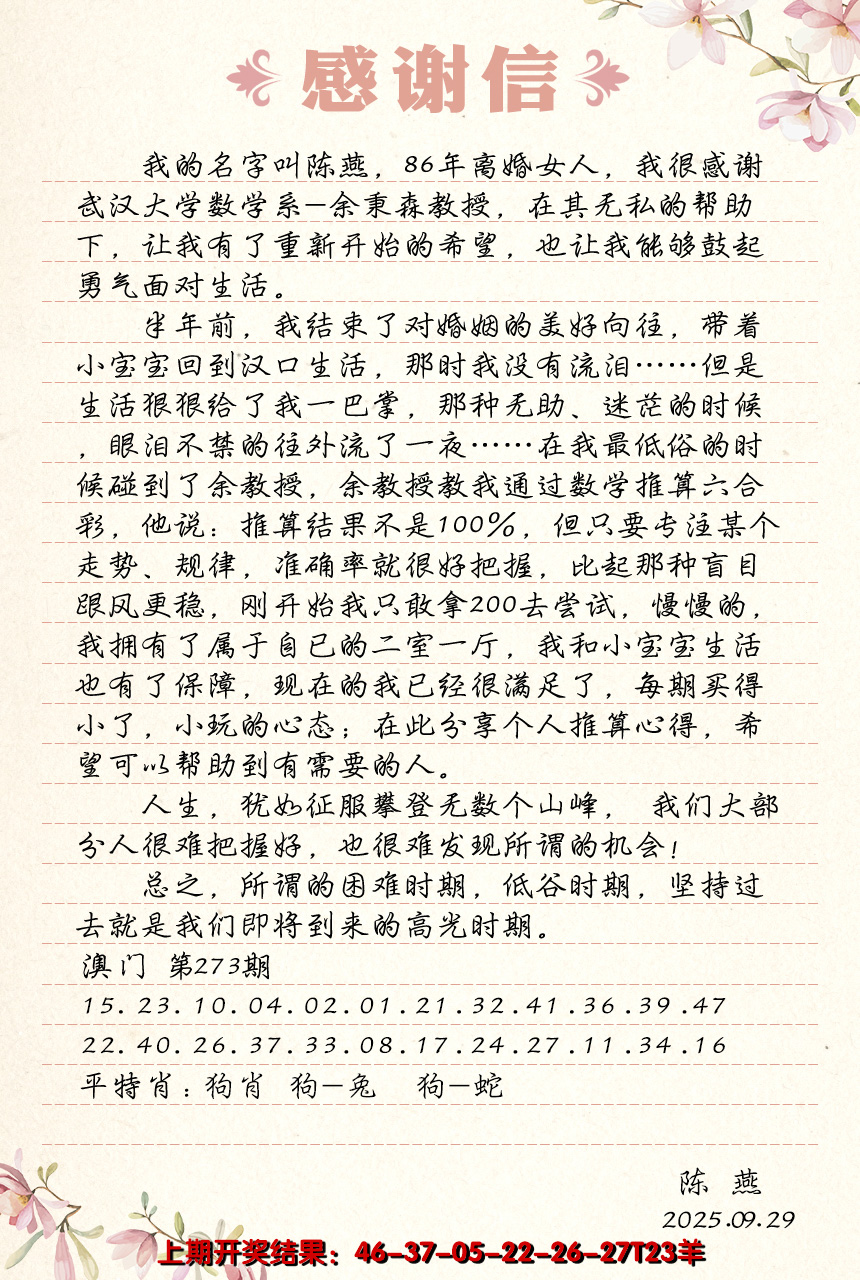 感谢信
我的名字叫陈燕，86年离婚女人，我很感谢
武汉大学数学系—余秉森教授，在其无私的帮助
下，让我有了重新开始的希望，也让我能够鼓起
勇气面对生活。
半年前，我结束了对婚姻的美好向往，带着
小宝宝回到汉口生活，那时我没有流泪……但是
生活狠狠给了我一巴掌，那种无助、迷茫的时候
，眼泪不禁的往外流了一夜……在我最低俗的时
候碰到了余教授，余教授教我通过数学推算六合
彩，他说：推算结果不是100%，但只要专注某个
走势、规律，准确率就很好把握，比起那种盲目
跟风更稳，刚开始我只敢拿200去尝试，慢慢的，
我拥有了属于自已的二室一厅，我和小宝宝生活
也有了保障，现在的我已经很满足了，每期买得
小了，小玩的心态；在此分享个人推算心得，希
望可以帮助到有需要的人。
人生，犹如征服攀登无数个山峰， 我们大部
分人很难把握好，也很难发现所谓的机会！
总之，所谓的困难时期，低谷时期，坚持过
去就是我们即将到来的高光时期。
澳门 第273期
15.23.10.04.02.01.21.32.41.36.39.47
22.40.26.37.33.08.17.24.27.11.34.16
平特肖：狗肖 狗—兔 狗—蛇
陈 燕
2025.09.29
上期开奖结果：46-37-05-22-26-27T23羊